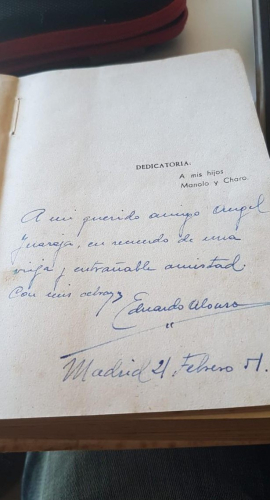 DEDICATORIA.
A mis hijos
Manolo y Charo.
A mi querido amigo Angel
en recuerdo de una
vieja y entrañable amistad.
Con mis
Eduardo Alonso
"
Madrid 21. Febrero 51.